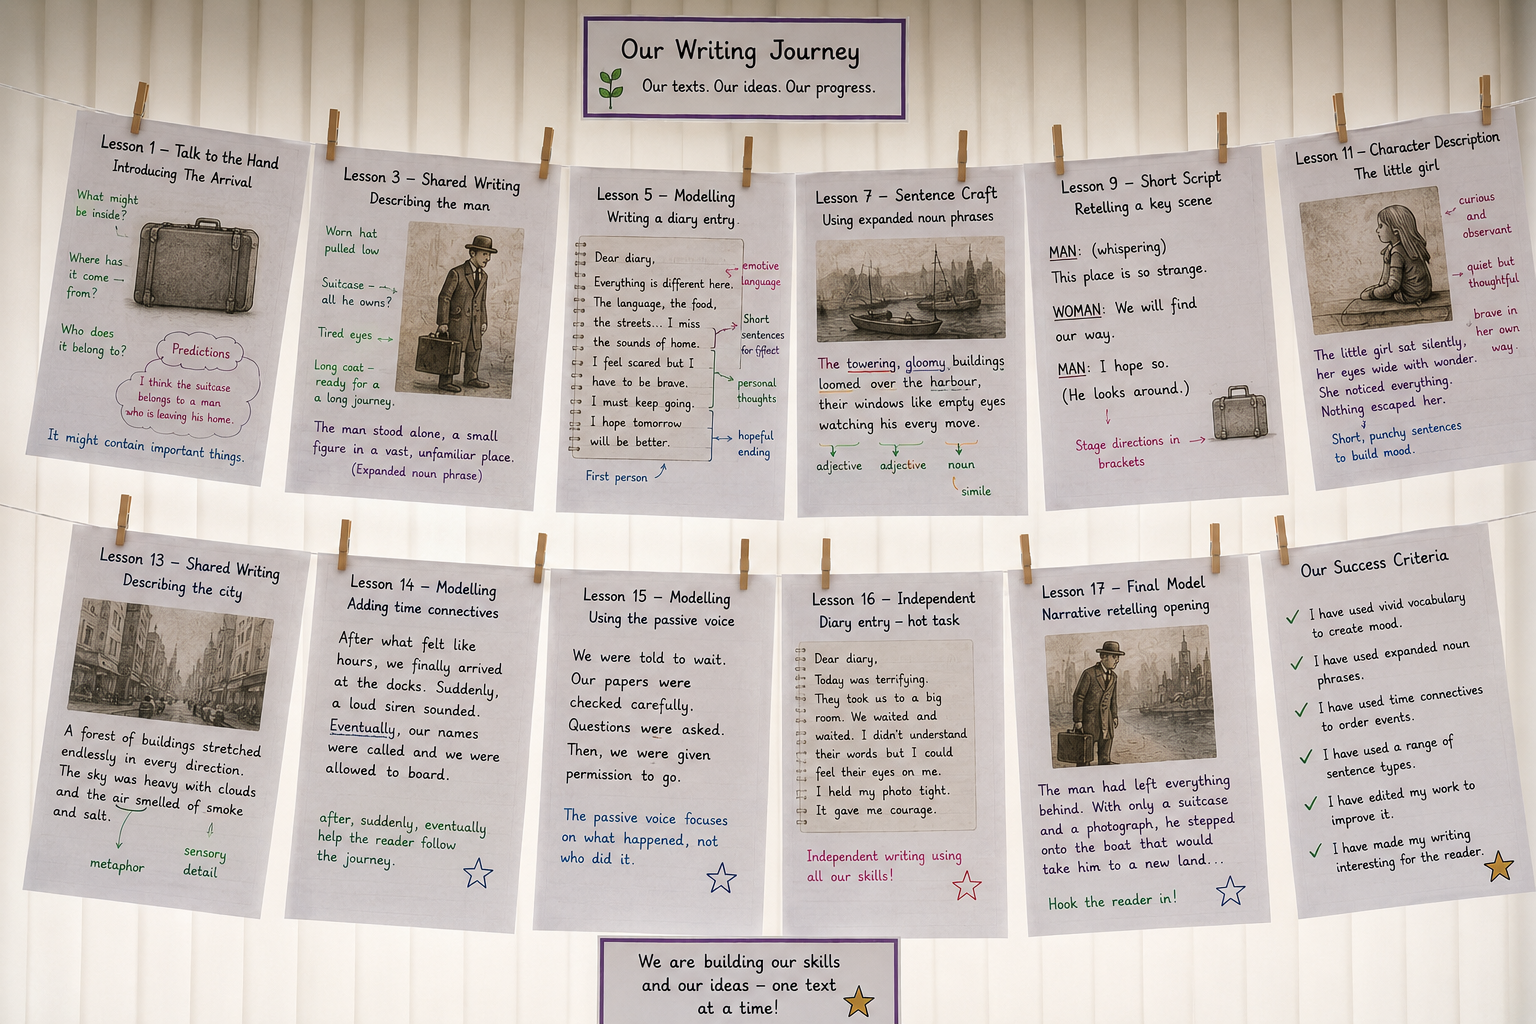 Our Writing Journey
Our texts. Our ideas. Our progress.
Lesson 1 – Talk to the Hand
Introducing The Arrival
What might
be inside?
Where has
it come
from?
Who does
it belong to?
Predictions
I think the suitcase
belongs to a man
who is leaving his home.
It might contain important things.
Lesson 3 – Shared Writing
Describing the man
Worn hat
pulled low
Suitcase –
all he owns?
Tired eyes
Long coat –
ready for a
a long journey.
The man stood alone, a small
figure in a vast, unfamiliar place.
(Expanded noun phrase)
Lesson 5 – Modelling
Writing a diary entry.
Dear diary,
Everything is different here.
The language, the food,
the streets... I miss
the sounds of home.
I feel scared but I
have to be brave.
I must keep going.
I hope tomorrow
will be better.
emotive
language
Short
sentences
for effect
personal
thoughts
hopeful
ending
First person
Lesson 7 – Sentence Craft
Using expanded noun phrases
The towering, gloomy buildings
loomed over the harbour,
their windows like empty eyes
watching his every move.
adjective adjective noun
simile
Lesson 9 – Short Script
Retelling a key scene
MAN: (whispering)
This place is so strange.
WOMAN: We will find
our way.
MAN: I hope so.
(He looks around.)
Stage directions in
brackets
Lesson 11 – Character Description
The little girl
curious
and
observant
quiet but
thoughtful
brave in
her own
way.
The little girl sat silently,
her eyes wide with wonder.
She noticed everything.
Nothing escaped her.
Short, punchy sentences
to build mood.
Lesson 13 – Shared Writing
Describing the city
A forest of buildings stretched
endlessly in every direction.
The sky was heavy with clouds
and the air smelled of smoke
and salt.
metaphor
sensory
detail
Lesson 14 – Modelling
Adding time connectives
After what felt like
hours, we finally arrived
at the docks. Suddenly,
a loud siren sounded.
Eventually, our names
were called and we were
allowed to board.
after, suddenly, eventually
help the reader follow
the journey.
Lesson 15 – Modelling
Using the passive voice
We were told to wait.
Our papers were
checked carefully.
Questions were asked.
Then, we were given
permission to go.
The passive voice focuses
on what happened, not
who did it.
Lesson 16 – Independent
Diary entry – hot task
Dear diary,
Today was terrifying.
They took us to a big
room. We waited and
waited. I didn't understand
their words but I could
feel their eyes on me.
I held my photo tight.
It gave me courage.
Independent writing using
all our skills!
Lesson 17 – Final Model
Narrative retelling opening
The man had left everything
behind. With only a suitcase
and a photograph, he stepped
onto the boat that would
take him to a new land...
Hook the reader in!
Our Success Criteria
✓ I have used vivid vocabulary
to create mood.
✓ I have used expanded noun
phrases.
✓ I have used time connectives
to order events.
✓ I have used a range of
sentence types.
✓ I have edited my work to
improve it.
✓ I have made my writing
interesting for the reader.
We are building our skills
and our ideas – one text
at a time!